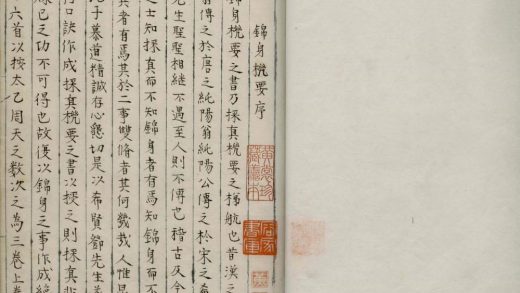 錦身機要序
錦身機要之書乃採真機要之梯航也昔漢之
翁傳之於唐之純陽翁純陽公傳之於宋之希
先生聖聖相繼不遇至人則不傳也稽古及今
之士知採真而不知錦身者有焉知錦身而不
真者有焉其於二事雙脩者其何幾哉人惟
子慕道精誠存心懇切是以希賢鄒先生
行口訣作成採真機要之書以授之則採真
已之功不可得也故復以錦身之事作成絕
六首以按太乙周天之數次之為三卷上卷
黃裳珍藏善本
家書庫